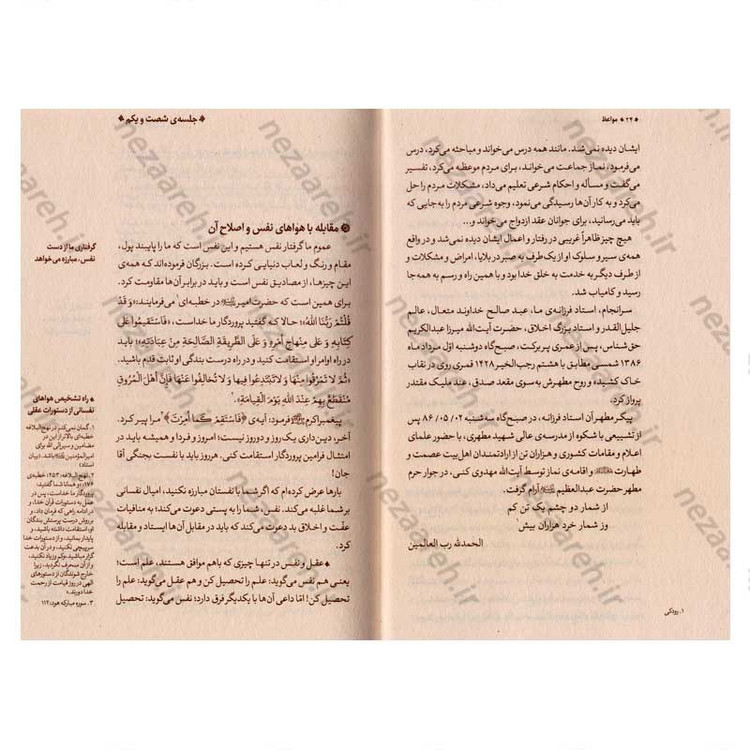 ۲۴ ♦ مواعظ
ایشان دیده نمی‌شد. مانند همه درس می‌خواند و مباحثه می‌کرد، درس
می‌فرمود، نماز جماعت می‌خواند، برای مردم موعظه می‌کرد، تفسیر
می‌گفت و مسأله و احکام شرعی تعلیم می‌داد، مشکلات مردم را حل
می‌کرد و به کار آن‌ها رسیدگی می‌نمود، وجوه شرعی مردم را به جایی که
باید می‌رسانید، برای جوانان عقد ازدواج می‌خواند و...
هیچ چیز ظاهراً غریبی در رفتار و اعمال ایشان دیده نمی‌شد و در واقع
همه‌ی سیر و سلوک او از یک طرف به صبر در بلایا، امراض و مشکلات و
از طرف دیگر به خدمت به خلق خدا بود و با همین راه و رسم به همه جا
رسید و کامیاب شد.
سرانجام، استاد فرزانه‌ی ما، عبد صالح خداوند متعال، عالم
جلیل‌القدر و استاد بزرگ اخلاق، حضرت آیت‌الله میرزا عبدالکریم
حق‌شناس، پس از عمری پر برکت، صبح‌گاه دوشنبه اوّل مرداد ماه
۱۳۸۶ شمسی مطابق با هشتم رجب‌الخیر ۱۴۲۸ قمری روی در نقاب
خاک کشید؛ و روح مطهرش به سوی مقعد صدق، عند ملیک مقتدر
پرواز کرد.
پیکر مطهر آن استاد فرزانه، در صبح‌گاه سه‌شنبه ۰۲/ ۰۵/ ۸۶ پس
از تشییعی با شکوه از مدرسه‌ی عالی شهید مطهری، با حضور علمای
اعلام و مقامات کشوری و هزاران تن از ارادتمندان اهل‌بیت عصمت و
طهارت و اقامه‌ی نماز توسط آیت الله مهدوی کنی، در جوار حرم
مطهر حضرت عبدالعظیم آرام گرفت.
از شمار دو چشم یک تن کم
وز شمار خرد هزاران بیش
الحمدلله رب العالمین
۱. رودکی
♦ جلسه‌ی شصت و یکم ♦
مقابله با هواهای نفس و اصلاح آن
عموم ما گرفتار نفس هستیم و این نفس است که ما را پایبند پول،
مقام و رنگ و لُعاب دنیایی کرده است. بزرگان فرموده‌اند که همه‌ی
این چیزها، از مصادیق نفس است و باید در برابر آن‌ها مقاومت کرد.
برای همین است که حضرت امیر در خطبه‌ای۱ می‌فرمایند: «وَ قَد
قُلْتُمْ رَبُّنَا اللهُ»؛ حالا که گفتید پروردگار ما خداست، «فَاسْتَقیمُوا عَلی
کِتابِهِ وَ عَلی مِنهاجِ أمرِهِ وَ عَلَی الطَّریقَةِ الصَّالِحَةِ مِنْ عِبَادَتِهِ»؛ باید در
راه اوامر او استقامت کنید و در راه درست بندگی او ثابت قدم باشید.
«ثُمَّ لا تَمرُقُوا مِنها وَ لا تَبتَدِعُوا فیها وَ لا تُخالِفُوا عَنْها فَإنَّ أهْلَ المُرُوقِ
مُنقَطَعٌ بِهِم عِندَ اللهِ یَومَ القِیامَةِ».۲
پیغمبر اکرم فرمود: آیه‌ی ﴿فَاسْتَقِمْ کَمَا أُمِرْتَ﴾۳ مرا پیر کرد.
آخر، دین داری یک روز و دو روز نیست؛ امروز و فردا و همیشه باید در
امتثال فرامین پروردگار استقامت کنی. هر روز باید با نفست بجنگی آقا
جان!
بارها عرض کرده‌ام که اگر شما با نفستان مبارزه نکنید، امیال نفسانی
بر شما غلبه می‌کند. نفس، شما را به پستی دعوت می‌کند؛ به منافیات
عفّت و اخلاق بد دعوت می‌کند که باید در مقابل آن‌ها ایستاد و مقابله
کرد.
♦ عقل و نفس در تنها چیزی که باهم موافق هستند، علم است؛
یعنی هم نفس می‌گوید: علم را تحصیل کن و هم عقل می‌گوید: علم را
تحصیل کن! امّا داعی آن‌ها با یکدیگر فرق دارد؛ نفس می‌گوید: تحصیل
گرفتاری ما از دست
نفس، مبارزه می‌خواهد
♦ راه تشخیص هواهای
نفسانی از دستورات عقلی
۱. گمان نمی‌کنم در نهج‌البلاغه
خطبه‌ای بالاتر از این در
مضامین و سیر الی الله برای
امیرالمؤمنین باشد. (بیان
استاد)
۲. نهج البلاغه: ۲۵۳، خطبه‌ی
۱۷۶؛ «و همانا شما گفتید:
پروردگار ما خداست، پس در
عمل به دستورات قرآن خدا، و
در ادامه راهی که فرمان داد، و
بر روش درست پرستش بندگان او،
استقامت داشته باشید، و
پایدار بمانید؛ و از دستورات خدا
سرپیچی نکنید، و در آن بدعت
گزار مباشید، و کم و زیاد نکنید،
و از آن منحرف نگردید. زیرا
خارج شوندگان از دستورهای
الهی در روز قیامت از رحمت
خدا دورند.»
۳. سوره مبارکه هود: ۱۱۲
nezaareh.ir